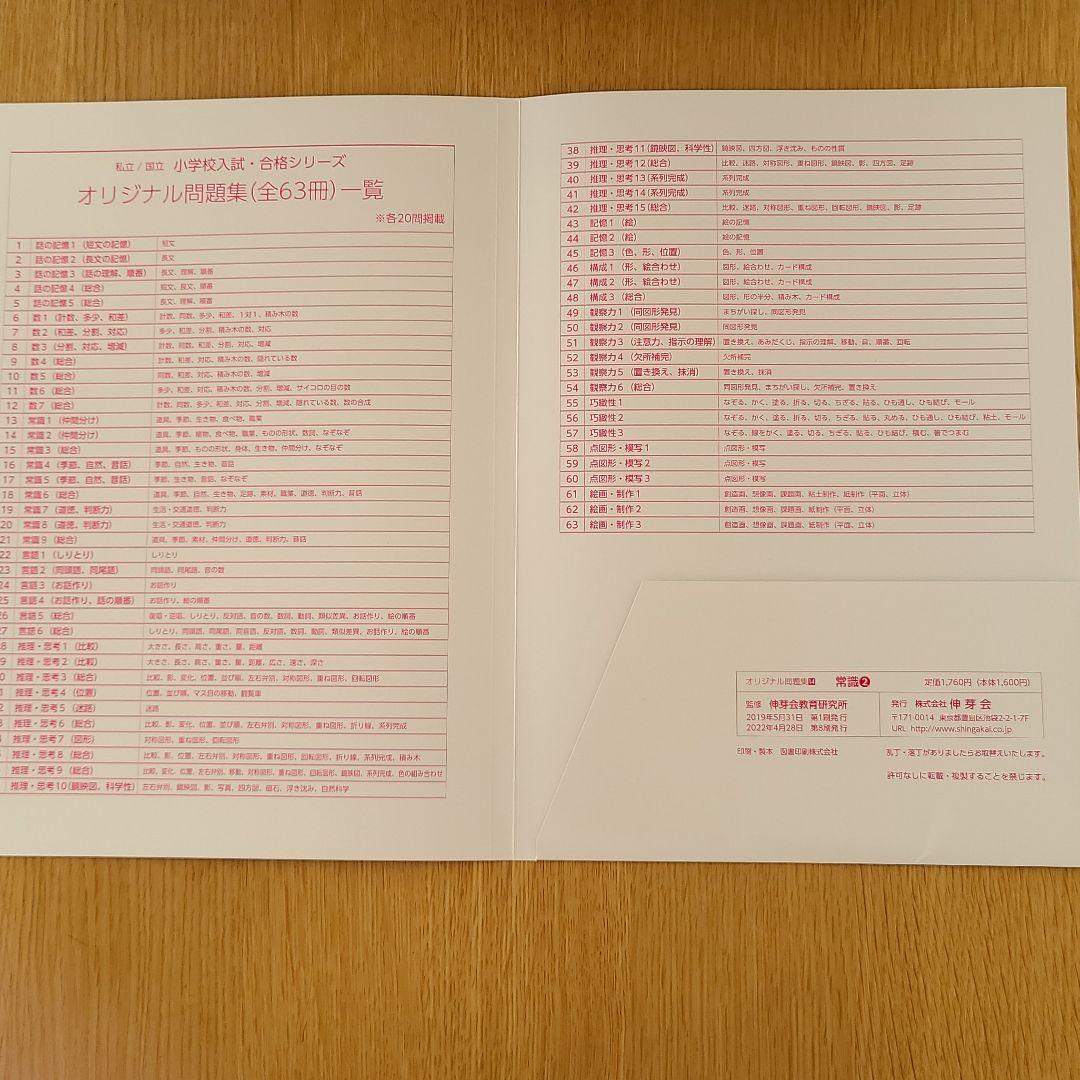 私立 / 国立 小学校入試・合格シリーズ
オリジナル問題集(全63冊)一覧
※各20問掲載
1 話の記憶1(短文の記憶) 短文
2 話の記憶2(長文の記憶) 長文
3 話の記憶3(話の理解、順番) 長文、理解、順番
4 話の記憶4(総合) 短文、長文、順番
5 話の記憶5(総合) 長文、理解、順番
6 数1(計数、多少、和差) 計数、同数、多少、和差、1対1、積み木の数
7 数2(和差、分割、対応) 多少、和差、分割、積み木の数、対応
8 数3(分割、対応、増減) 計数、同数、和差、分割、対応、増減
9 数4(総合) 計数、和差、対応、積み木の数、隠れている数
10 数5(総合) 同数、和差、対応、積み木の数、増減
11 数6(総合) 多少、和差、対応、積み木の数、分割、増減、サイコロの目の数
12 数7(総合) 計数、同数、多少、和差、対応、分割、増減、隠れている数、数の合成
13 常識1(仲間分け) 道具、季節、生き物、食べ物、職業
14 常識2(仲間分け) 道具、季節、植物、食べ物、職業、ものの形状、数詞、なぞなぞ
15 常識3(総合) 道具、季節、ものの形状、身体、生き物、仲間分け、なぞなぞ
16 常識4(季節、自然、昔話) 季節、自然、生き物、昔話
17 常識5(季節、自然、昔話) 季節、生き物、昔話、なぞなぞ
18 常識6(総合) 道具、季節、自然、生き物、足跡、素材、職業、道徳、判断力、昔話
19 常識7(道徳、判断力) 生活・交通道徳、判断力
20 常識8(道徳、判断力) 生活・交通道徳、判断力
21 常識9(総合) 道具、季節、素材、仲間分け、道徳、判断力、昔話
22 言語1(しりとり) しりとり
23 言語2(同頭語、同尾語) 同頭語、同尾語、音の数
24 言語3(お話作り) お話作り
25 言語4(お話作り、話の順番) お話作り、絵の順番
26 言語5(総合) 復唱・逆唱、しりとり、反対語、音の数、数詞、動詞、類似差異、お話作り、絵の順番
27 言語6(総合) しりとり、同頭語、同尾語、同音語、反対語、数詞、動詞、類似差異、お話作り、絵の順番
8 推理・思考1(比較) 大きさ、長さ、高さ、重さ、量、距離
9 推理・思考2(比較) 大きさ、長さ、高さ、重さ、量、距離、広さ、速さ、深さ
0 推理・思考3(総合) 比較、影、変化、位置、並び順、左右弁別、対称図形、重ね図形、回転図形
1 推理・思考4(位置) 位置、並び順、マス目の移動、観覧車
2 推理・思考5(迷路) 迷路
3 推理・思考6(総合) 比較、影、変化、位置、並び順、左右弁別、対称図形、重ね図形、折り線、系列完成
推理・思考7(図形) 対称図形、重ね図形、回転図形
推理・思考8(総合) 比較、影、位置、左右弁別、対称図形、重ね図形、回転図形、折り線、系列完成、積み木
推理・思考9(総合) 比較、変化、位置、左右弁別、移動、対称図形、重ね図形、回転図形、鏡映図、系列完成、色の組み合わせ
推理・思考10(鏡映図、科学性) 左右弁別、鏡映図、影、写真、四方図、磁石、浮き沈み、自然科学
38 推理・思考11(鏡映図、科学性) 鏡映図、四方図、浮き沈み、ものの性質
39 推理・思考12(総合) 比較、迷路、対称図形、重ね図形、鏡映図、影、四方図、足跡
40 推理・思考13(系列完成) 系列完成
41 推理・思考14(系列完成) 系列完成
42 推理・思考15(総合) 比較、迷路、対称図形、重ね図形、回転図形、鏡映図、影、足跡
43 記憶1(絵) 絵の記憶
44 記憶2(絵) 絵の記憶
45 記憶3(色、形、位置) 色、形、位置
46 構成1(形、絵合わせ) 図形、絵合わせ、カード構成
47 構成2(形、絵合わせ) 図形、絵合わせ、カード構成
48 構成3(総合) 図形、形の半分、積み木、カード構成
49 観察力1(同図形発見) まちがい探し、同図形発見
50 観察力2(同図形発見) 同図形発見
51 観察力3(注意力、指示の理解) 置き換え、あみだくじ、指示の理解、移動、目、順番、回転
52 観察力4(欠所補完) 欠所補完
53 観察力5(置き換え、抹消) 置き換え、抹消
54 観察力6(総合) 同図形発見、まちがい探し、欠所補完、置き換え
55 巧緻性1 なぞる、かく、塗る、折る、切る、ちぎる、貼る、ひも通し、ひも結び、モール
56 巧緻性2 なぞる、かく、塗る、折る、切る、ちぎる、貼る、丸める、ひも通し、ひも結び、粘土、モール
57 巧緻性3 なぞる、線をかく、塗る、切る、ちぎる、貼る、ひも結び、積む、箸でつまむ
58 点図形・模写1 点図形・模写
59 点図形・模写2 点図形・模写
60 点図形・模写3 点図形・模写
61 絵画・制作1 創造画、想像画、課題画、粘土制作、紙制作(平面、立体)
62 絵画・制作2 創造画、想像画、課題画、紙制作(平面、立体)
63 絵画・制作3 創造画、想像画、課題画、紙制作(平面、立体)
オリジナル問題集14 常識❷ 定価1,760円(本体1,600円)
監修 伸芽会教育研究所
2019年5月31日 第1刷発行
2022年4月28日 第8刷発行
発行 株式会社 伸芽会
〒171-0014 東京都豊島区池袋2-2-1-7F
URL http://www.shingakai.co.jp
印刷・製本 図書印刷株式会社
乱丁・落丁がありましたらお取替えいたします。
許可なしに転載・複製することを禁じます。